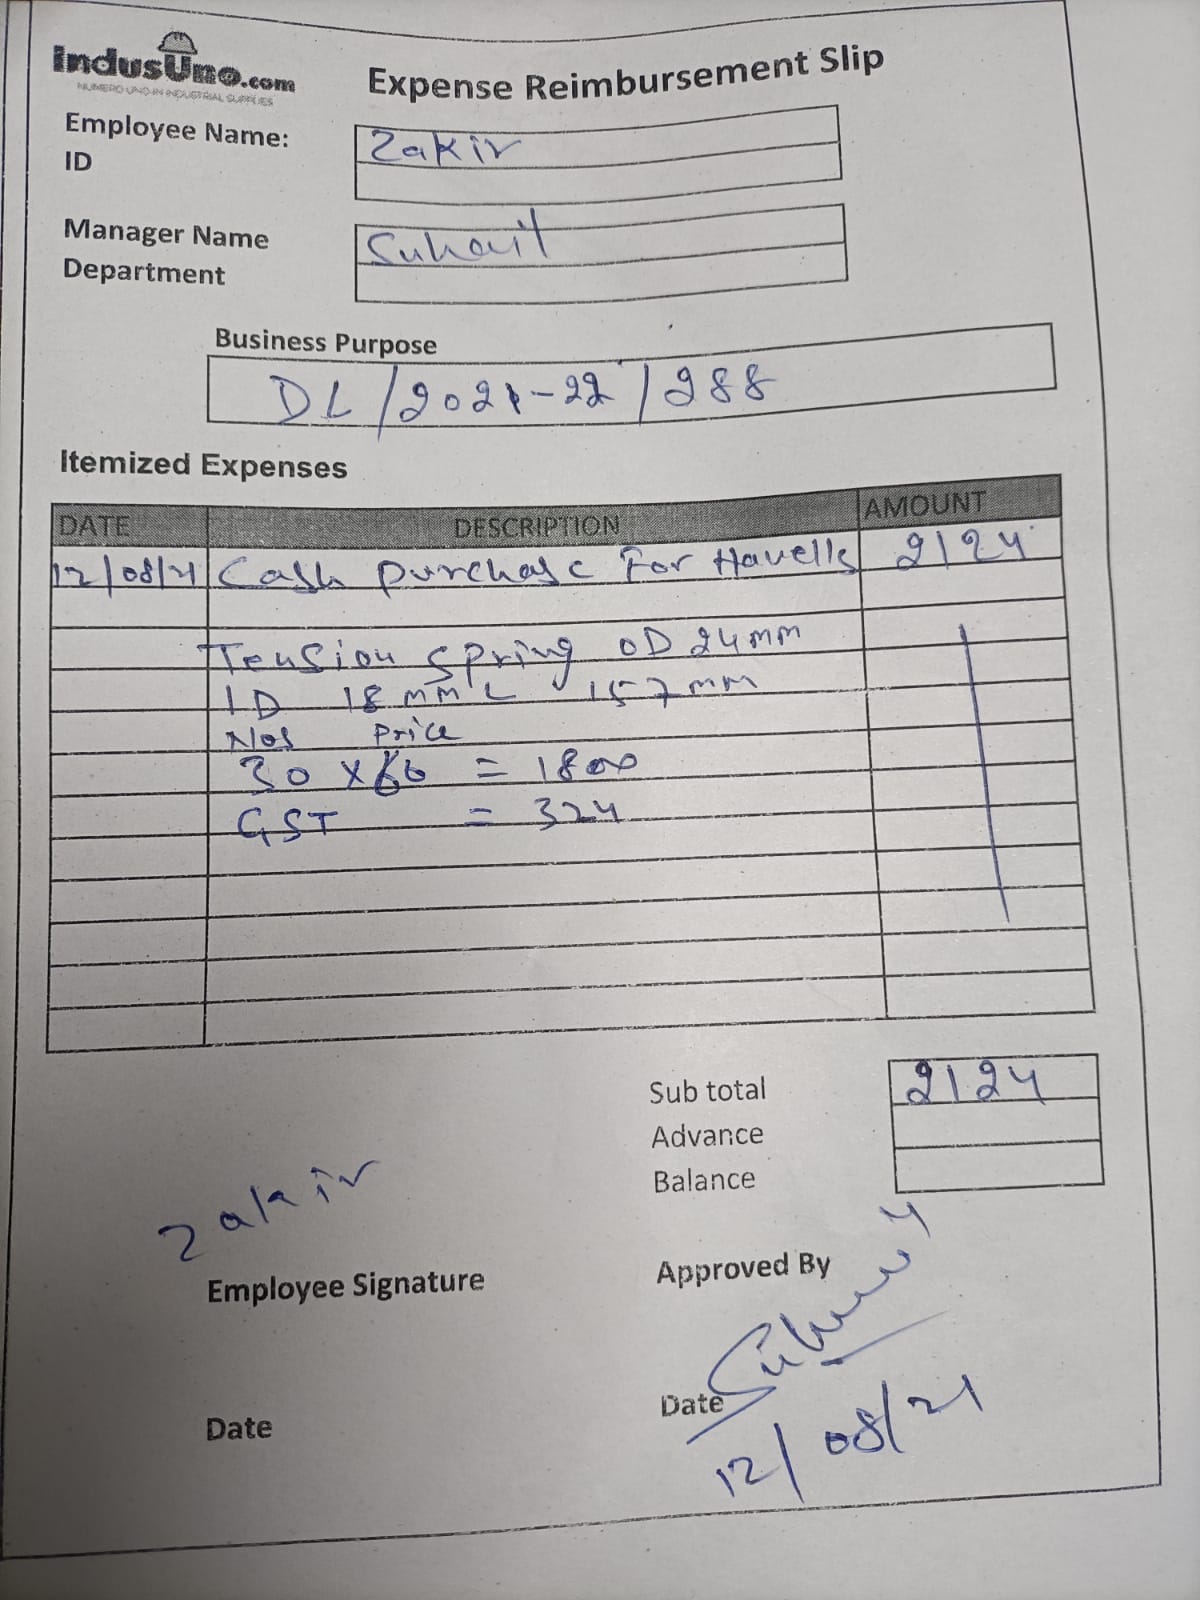 IndusUno.com
NUMERO UNO IN INDUSTRIAL SUPPLIES
Expense Reimbursement Slip
Employee Name: Zakir
ID
Manager Name Suhail
Department
Business Purpose
DL/2021-22/288
Itemized Expenses
DATE DESCRIPTION AMOUNT
12/08/21 Cash purchase For Havells 2124
Tension Spring OD 24mm
ID 18mm L 157mm
Nos Price
30 x 60 = 1800
GST = 324
Sub total 2124
Advance
Balance
Zakir
Employee Signature
Approved By
Suhail
Date
Date
12/08/21